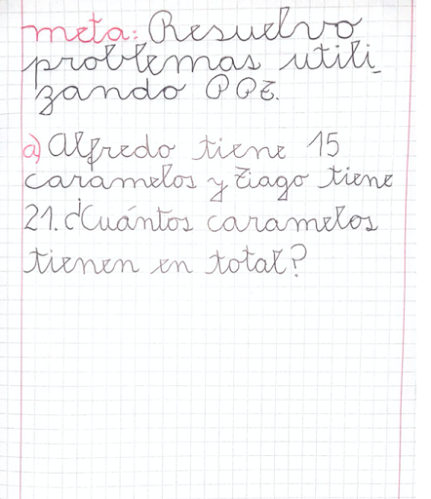 meta: Resuelvo
problemas utili_
zando PPE.
a) Alfredo tiene 15
caramelos y Tiago tiene
21. ¿Cuántos caramelos
tienen en total?